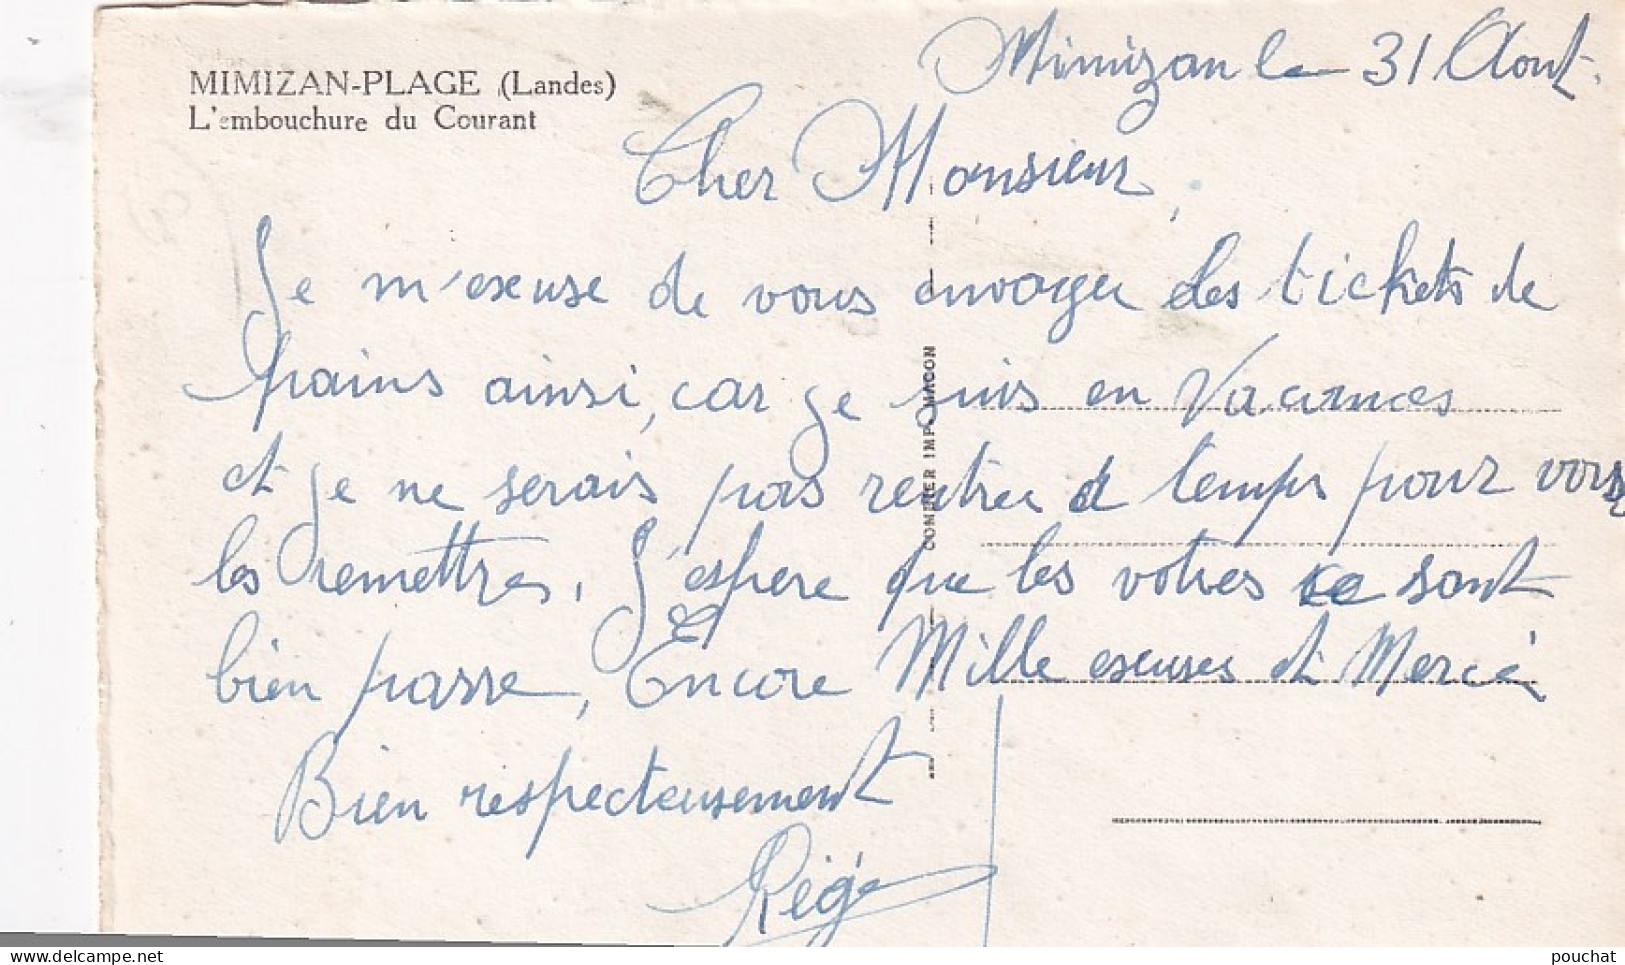 MIMIZAN-PLAGE (Landes)
L'embouchure du Courant
Mimizan le 31 Aout.
Cher Monsieur,
Je m'excuse de vous envoyer les tickets de
pains ainsi, car je suis en Vacances
et je ne serais pas rentrer à temps pour vous
les remettres. J'espere que les votres se sont
bien passe, Encore Mille excuses et Merci
Bien respectueusement
COMBIER IMP. MACON
www.delcampe.net
pouchat